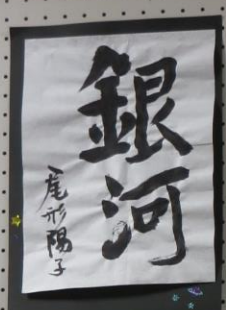 銀河
尾形陽子